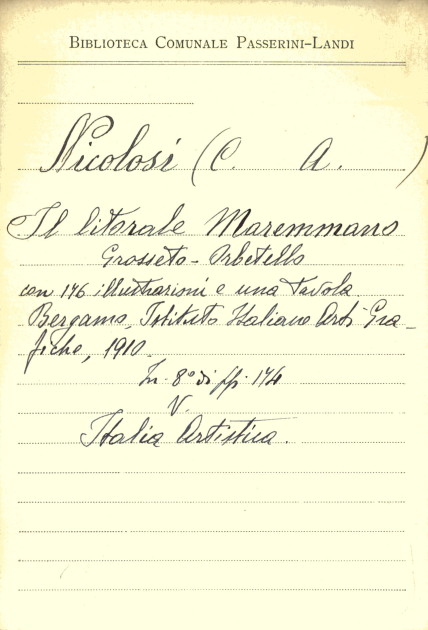 BIBLIOTECA COMUNALE PASSERINI-LANDI
Nicolosi (C. A. )
Il litorale Maremmano
Grosseto - Orbetello
con 176 illustrazioni e una tavola.
Bergamo, Istituto Italiano Arti Gra-
fiche, 1910.
In 8º di pp. 174
V.
Italia Artistica.